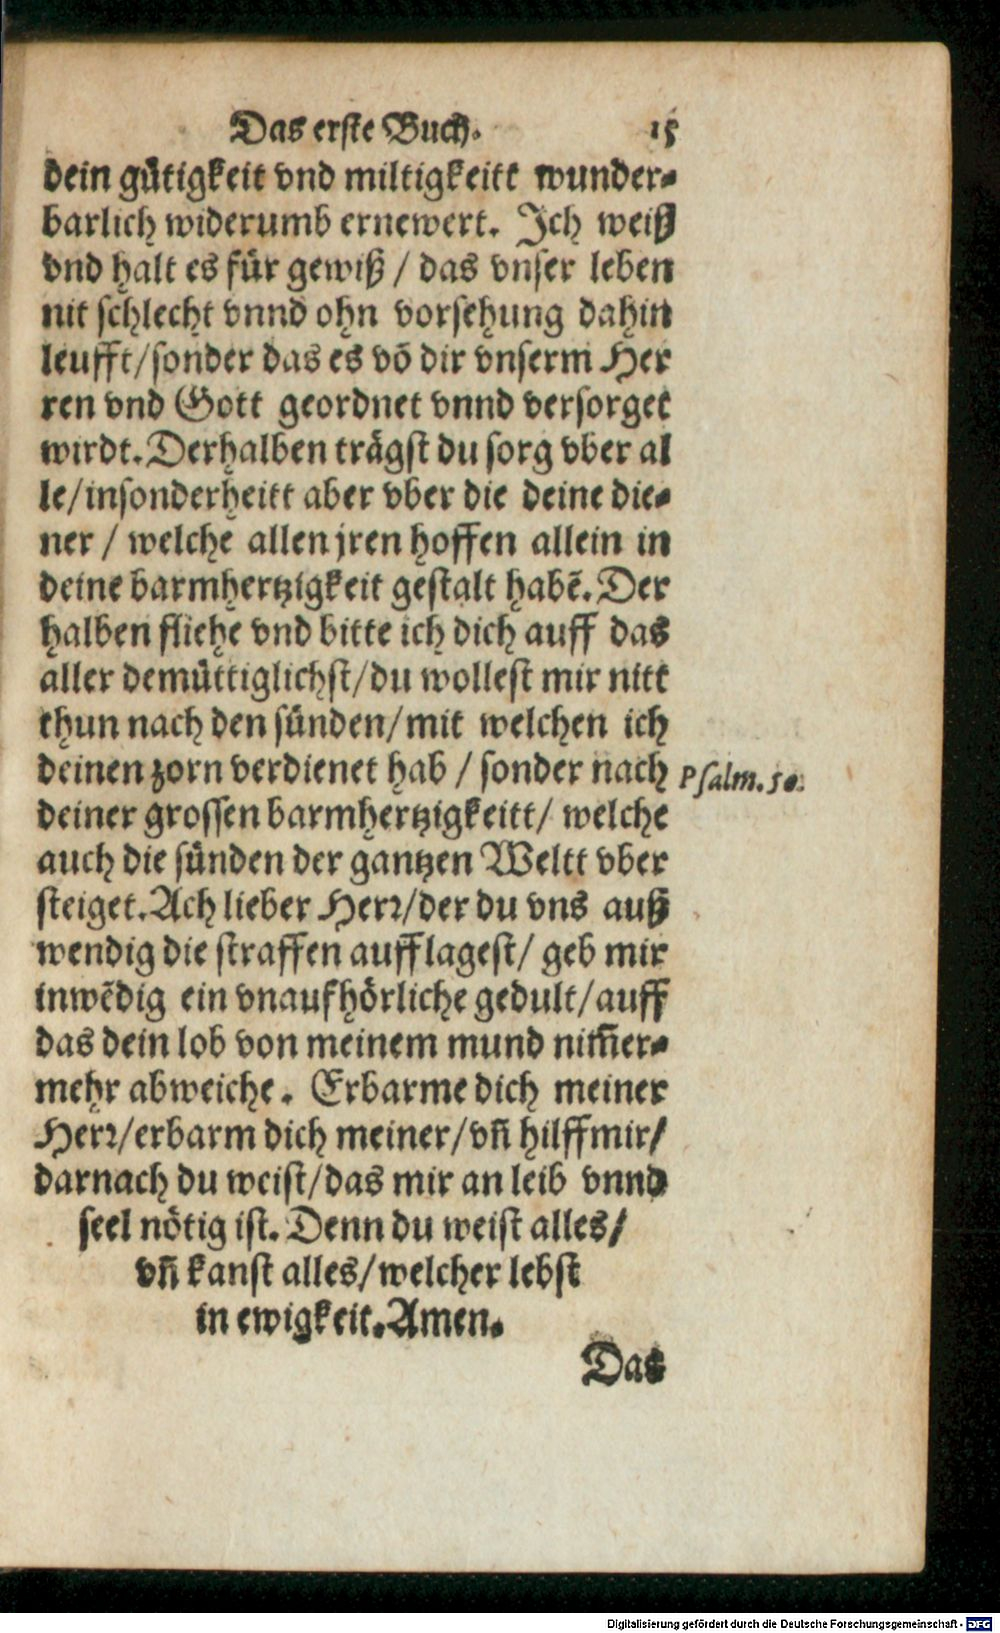 Das erste Buch. 15
dein gütigkeit vnd miltigkeitt wunder-
barlich widerumb ernewert. Ich weiß
vnd halt es für gewiß / das vnser leben
nit schlecht vnnd ohn vorsehung dahin
leufft/sonder das es võ dir vnserm Her
ren vnd Gott geordnet vnnd versorget
wirdt. Derhalben trägst du sorg vber al
le/insonderheitt aber vber die deine die-
ner / welche allen jren hoffen allein in
deine barmhertzigkeit gestalt habẽ. Der
halben fliehe vnd bitte ich dich auff das
aller demüttiglichst/du wollest mir nitt
thun nach den sünden/mit welchen ich
deinen zorn verdienet hab / sonder nach
Psalm. 50.
deiner grossen barmhertzigkeitt/ welche
auch die sünden der gantzen Weltt vber
steiget. Ach lieber Herr/der du vns auß
wendig die straffen aufflagest/ geb mir
inwẽdig ein vnaufhörliche gedult/auff
das dein lob von meinem mund nim̃er-
mehr abweiche. Erbarme dich meiner
Herr/erbarm dich meiner/vñ hilff mir/
darnach du weist/das mir an leib vnnd
seel nötig ist. Denn du weist alles/
vñ kanst alles/welcher lebst
in ewigkeit. Amen.
Das
Digitalisierung gefördert durch die Deutsche Forschungsgemeinschaft - DFG